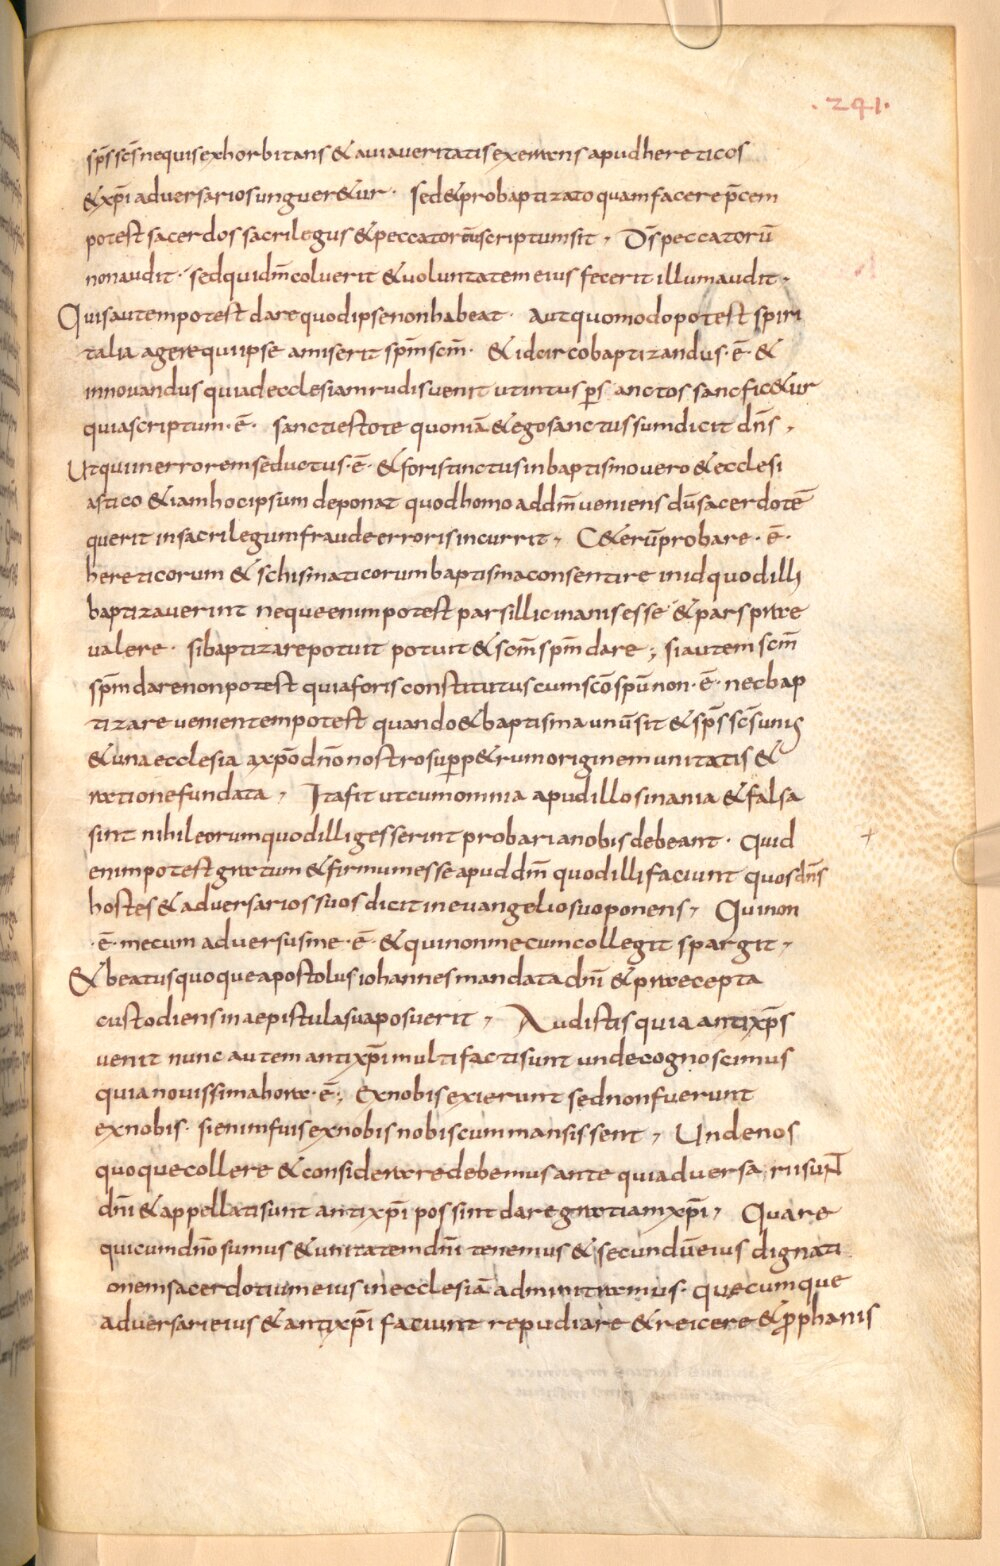 .241.
sp̄s sc̄s nequis exhorbitans & a via veritatis exerrans apud hereticos
& xp̄i adversarios ungueretur. sed & pro baptizato quam facere p̄cem
potest sacerdos sacrilegus & peccator cū scriptum sit, Dr̄s peccatorū
non audit. sed qui dm̄ coluerit & voluntatem eius fecerit illum audit.
Quis autem potest dare quod ipse non habeat. Aut quomodo potest spiri
talia agere qui ipse amiserit spm̄ scm̄. & idcirco baptizandus .ē. &
innovandus qui ad ecclesiam rudis venit ut intus p̄ sanctos sancficetur
quia scriptum .ē. sancti estote quoniā & ego sanctus sum dicit dn̄s,
Ut qui in errorem seductus .ē. & foris tinctus in baptismo vero & ecclesi
astico & iam hoc ipsum deponat quod homo ad dm̄ veniens dū sacerdotē
querit in sacrilegum fraude erroris incurrit, Ceterū probare .ē.
hereticorum & schismaticorum baptisma consentire in id quod illi
baptizaverint neque enim potest pars illic inanis esse & pars prae
valere. si baptizare potuit potuit & scm̄ spm̄ dare; si autem scm̄
spm̄ dare non potest quia foris constitutus cum scō spū non .ē. nec bap
tizare venientem potest quando & baptisma unū sit & sp̄s sc̄s unus
& una ecclesia a xp̄o dn̄o nostro sup̄ petrum origine munitatis &
ratione fundata, Ita fit ut cum omnia apud illos inania & falsa
sint nihil eorum quod illi gesserint probari a nobis debeant. Quid
enim potest gratum & firmum esse apud dm̄ quod illi faciunt quos dn̄s
hostes & adversarios suos dicit in evangelio suo ponens, Qui non
.ē. mecum adversus me .ē. & qui non mecum collegit spargit,
& beatus quoque apostolus iohannes mandata dn̄i & praecepta
custodiens in aepistula sua posuerit, Audistis quia antixp̄s
venit nunc autem antixp̄i multi facti sunt unde cognoscimus
quia novissima hora .ē.; Ex nobis exierunt sed non fuerunt
ex nobis. si enim fuis ex nobis nobiscum mansissent, Unde nos
quoque collere & considerare debemus ante qui adversarii sunt
dn̄i & appellati sunt antixp̄i possint dare gratiam xp̄i, Quare
qui cum dn̄o sumus & unitatem dn̄i tenemus & secundū eius dignati
onem sacerdotium eius in ecclesiā adminitramus. quecumque
adversari eius & antixp̄i faciunt repudiare & reicere & p̄phanis